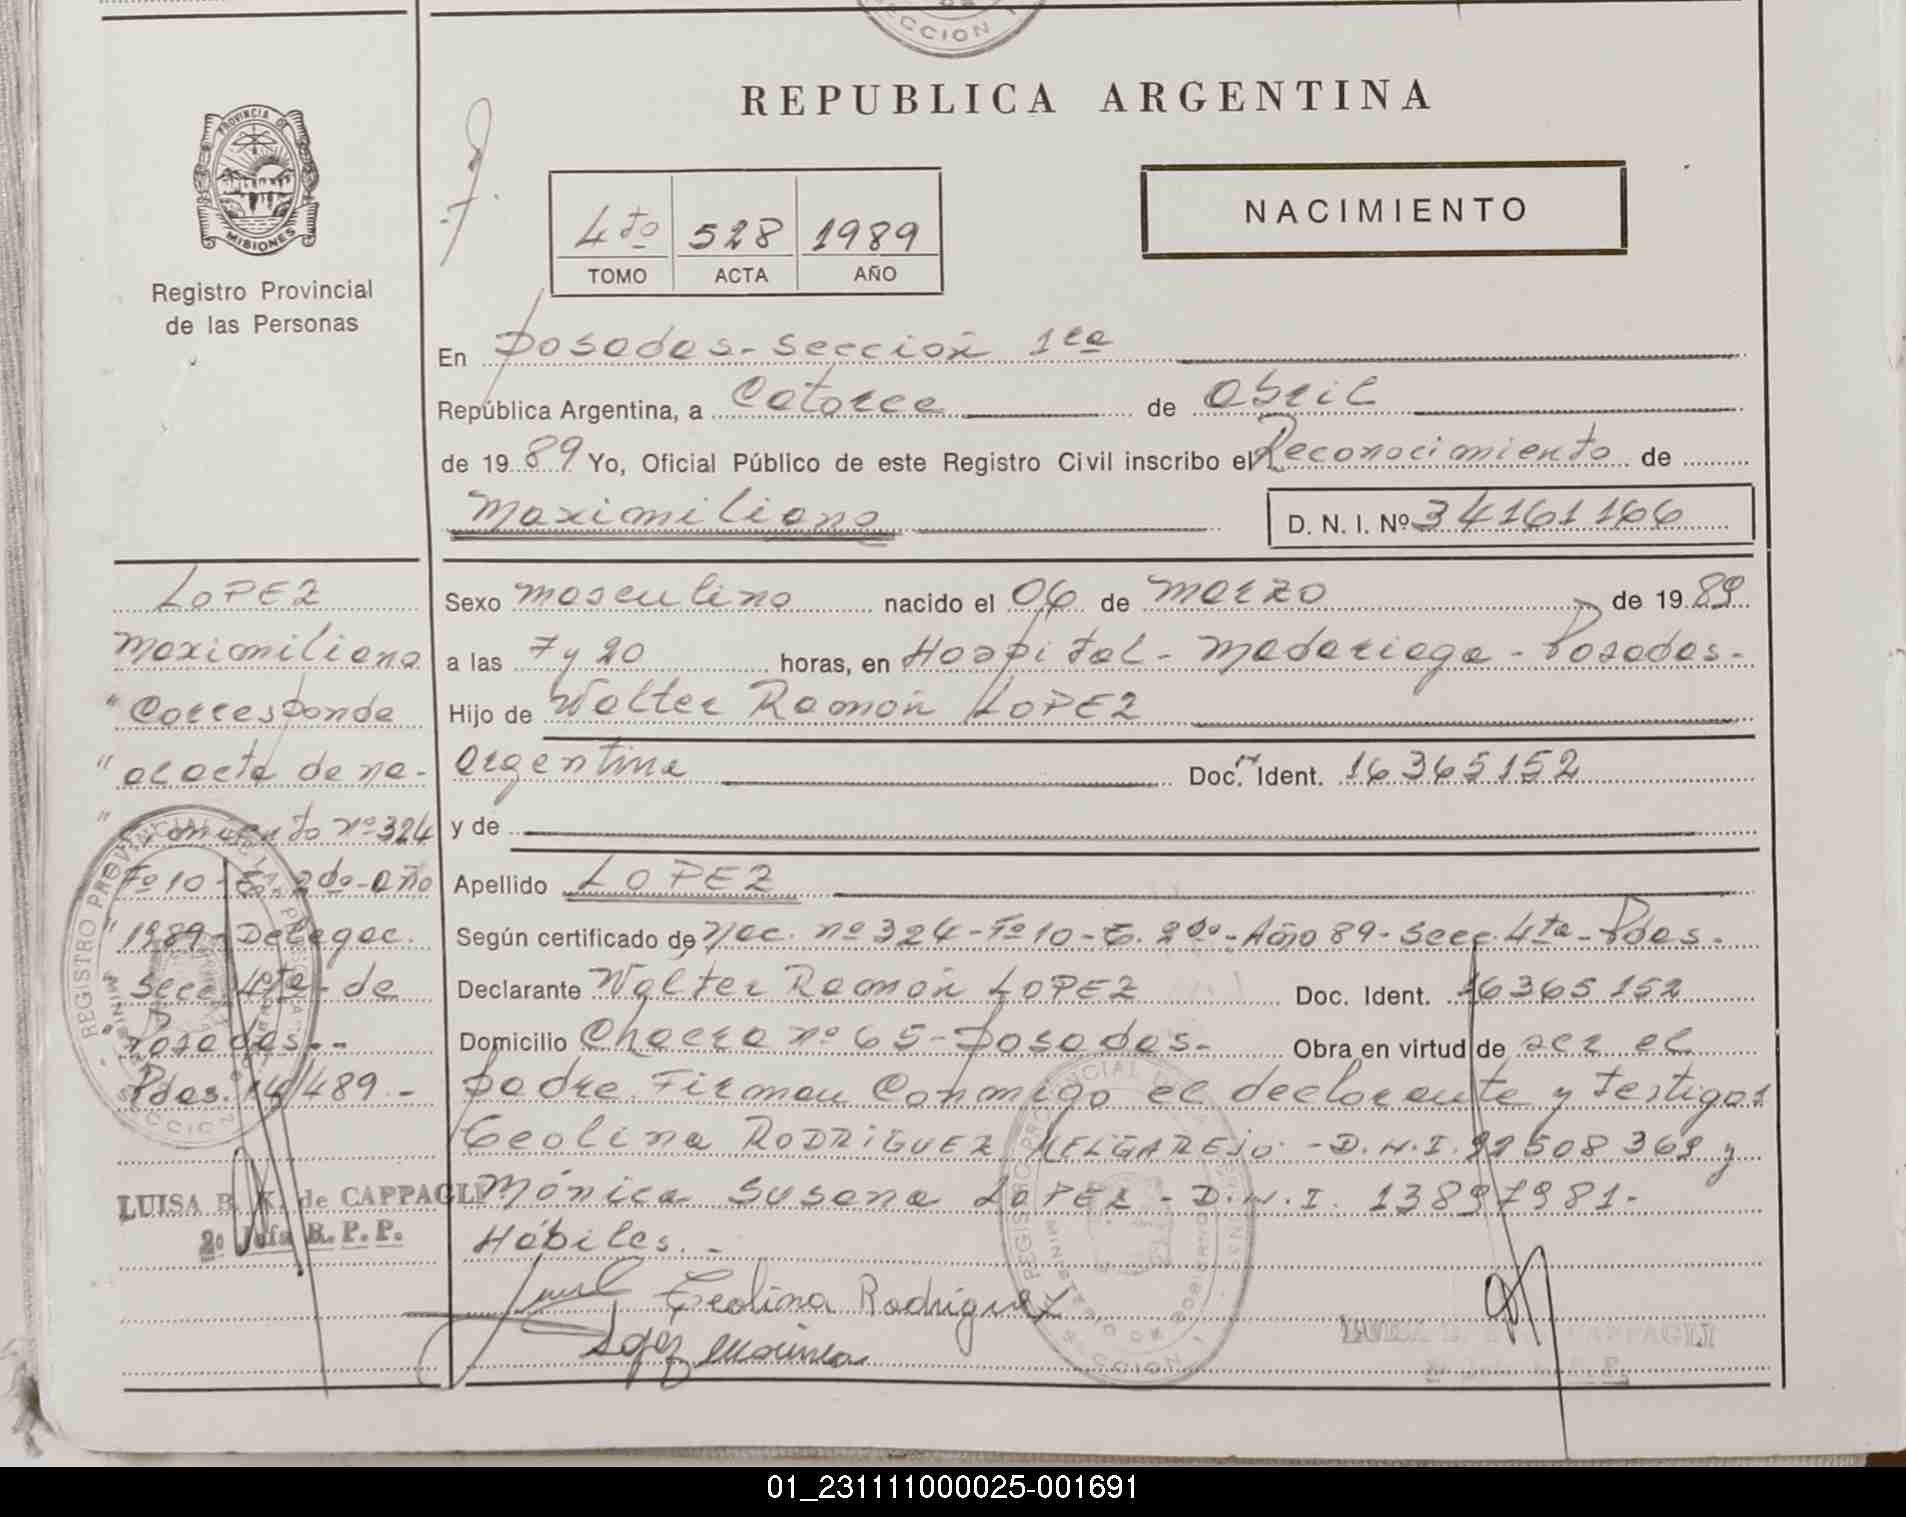 REPUBLICA ARGENTINA
PROVINCIA DE
MISIONES
Registro Provincial
de las Personas
4to 528 1989
TOMO ACTA AÑO
NACIMIENTO
En Posadas - Sección 1ra
República Argentina, a Catorce de Abril
de 1989 Yo, Oficial Público de este Registro Civil inscribo el Reconocimiento de
Maximiliano D. N. I. Nº 34161166
Sexo masculino nacido el 06 de Marzo de 1989
a las 7 y 20 horas, en Hospital - Madariaga - Posadas -
Hijo de Walter Ramón LOPEZ
Argentina Doc. Ident. 16365152
y de
Apellido LOPEZ
Según certificado de Nac. nº 324 - Fº 10 - T. 2do - Año 89 - Secc. 4ta - Pdas.
Declarante Walter Ramón LOPEZ Doc. Ident. 16365152
Domicilio Chacra nº 65 - Posadas - Obra en virtud de ser el
padre. Firman Conmigo el declarante y testigos
Ceolina RODRIGUEZ MELGAREJO - D.N.I. 92508369 y
Mónica Susana LOPEZ - D.N.I. 13897981 -
Hábiles. -
Ceolina Rodriguez
Lopez Monica
LOPEZ
Maximiliano
" Corresponde
" al acta de na-
" cimiento nº 324
Fº 10 - T. 2do - año
" 1989 - Delegac.
Secc. 4ta - de
Posadas. -
Pdas. 14/4/89. -
LUISA B. K. de CAPPAGLI
2º Jefa R. P. P.
01_231111000025-001691